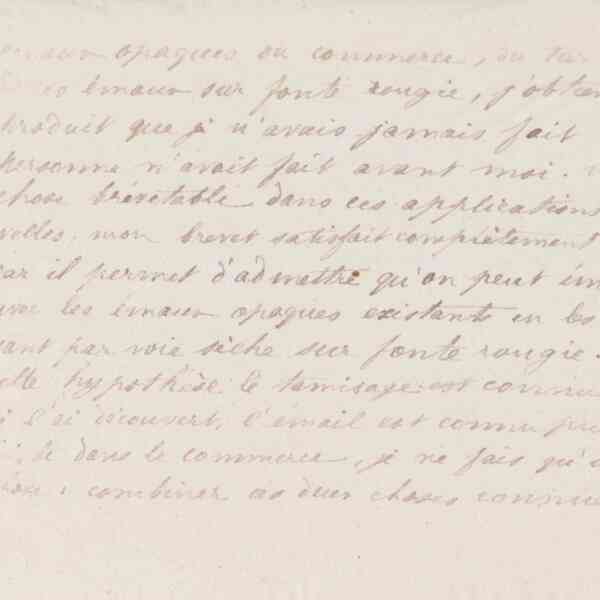 opaques du commerce, du
émaux sur fonte rougie, j'obtien
produit que je n'avais jamais fait
personne n'avait fait avant moi.
chose brévetable dans ces applications
velles. mon brevet satisfait complètement
car il permet d'admettre qu'on peut
avec les émaux opaques existants en les
sant par voie sèche sur fonte rougie.
hypothèse le tamisage est connu
l'ai découvert, l'émail est connu
dans le commerce, je ne fais qu'u
combiner ces deux choses connues